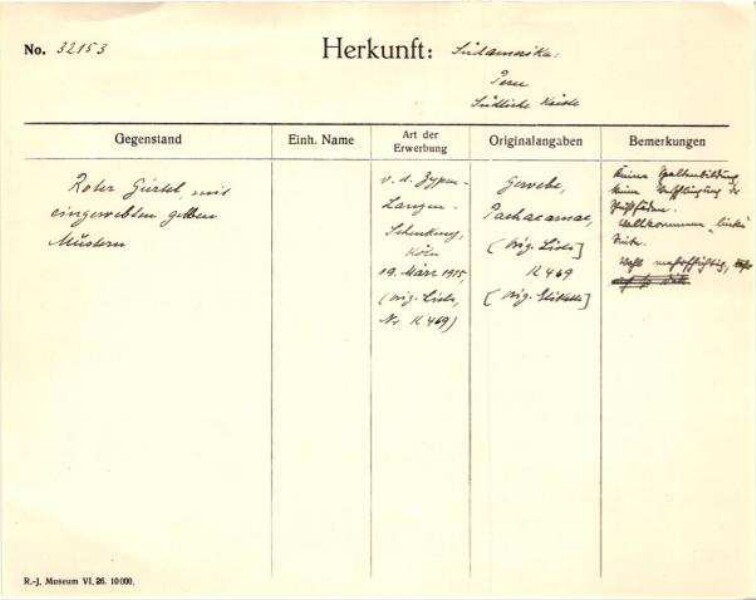 No. 32153
Herkunft: Südamerika.
Peru
Südliche Küste
Gegenstand
Einh. Name
Art der
Erwerbung
Originalangaben
Bemerkungen
Roter Gürtel mit
eingewebten gelben
Mustern
v. d. Zypen-
Langen-
Schenkung,
Köln
19. März 1915,
(orig. Liste,
Nr. K 469)
Gewebe,
Pachacamac,
(Orig. Liste]
K 469
[Orig. Etikette]
Keine Spaltenbildung,
keine Verschlingung der
Schußfäden.
Vollkommen "linke"
Seite.
Wohl mehrschichtig,
R.-J. Museum VI. 26. 10000.